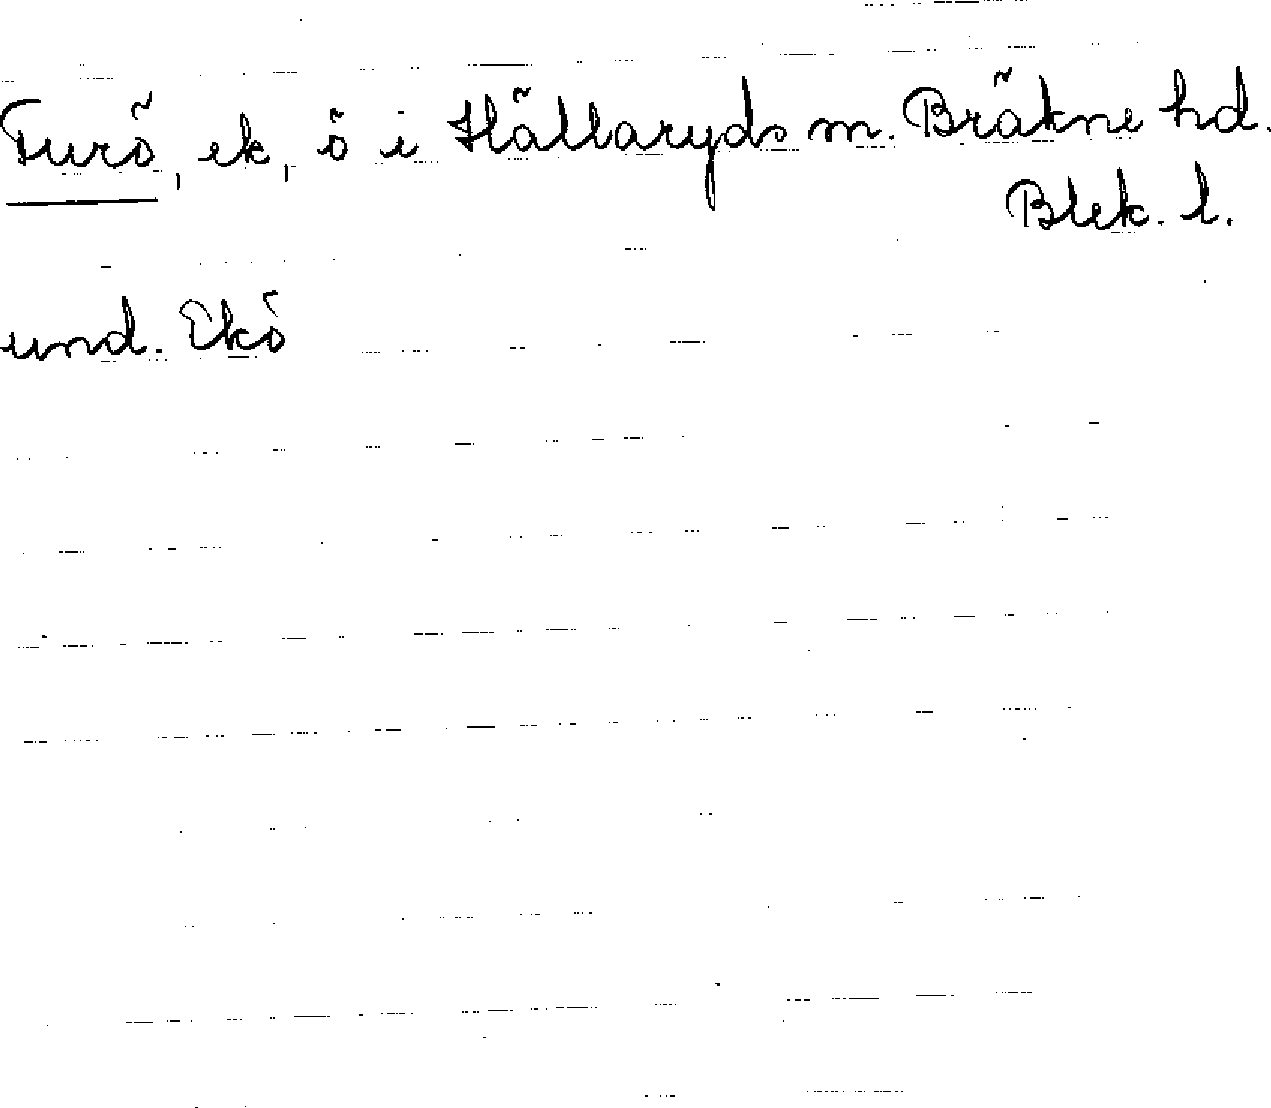 Furö, ek, ö i Hällaryds m. Bräkne hd.
Blek. l.
und. Ekö